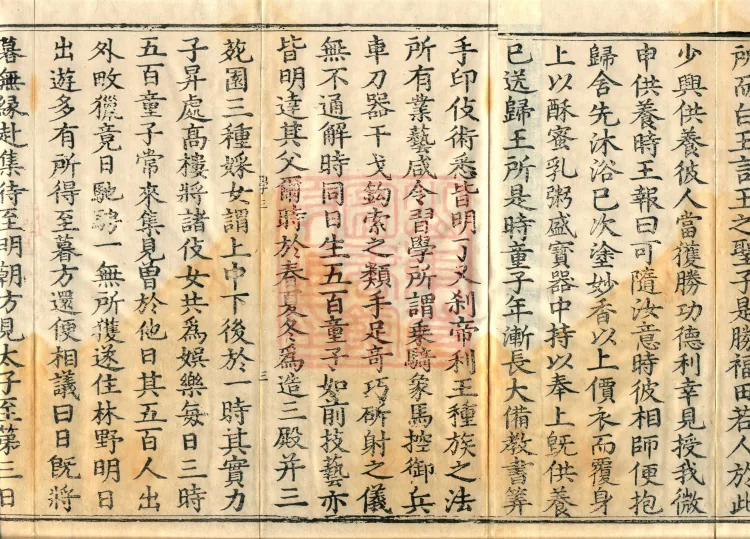 所而白王言王之聖子是勝福田若人於此
少興供養彼人當獲勝功德利幸見授我微
申供養時王報曰可隨汝意時彼相師便抱
歸舍先沐浴已次塗妙香以上價衣而覆身
上以酥蜜乳粥盛寶器中持以奉上旣供養
已送歸王所是時童子年漸長大備教書筭
手印伎術悉皆明了又刹帝利王種族之法
所有業藝咸令習學所謂乗騎象馬控御兵
車刀器干戈鉤索之類手足奇巧斫射之儀
無不通解時同日生五百童子如前技藝亦
皆明達其父爾時於春夏冬爲造三殿并三
苑園三種婇女謂上中下後於一時其實力
子昇處髙樓將諸伎女共爲娯樂每日三時
五百童子常來集見曽於他日其五百人出
外畋獵竟日馳騁一無所獲遂住林野明日
出遊多有所得至暮方還便相議曰日旣將
暮無縁赴集待至明朝方見太子至第三日